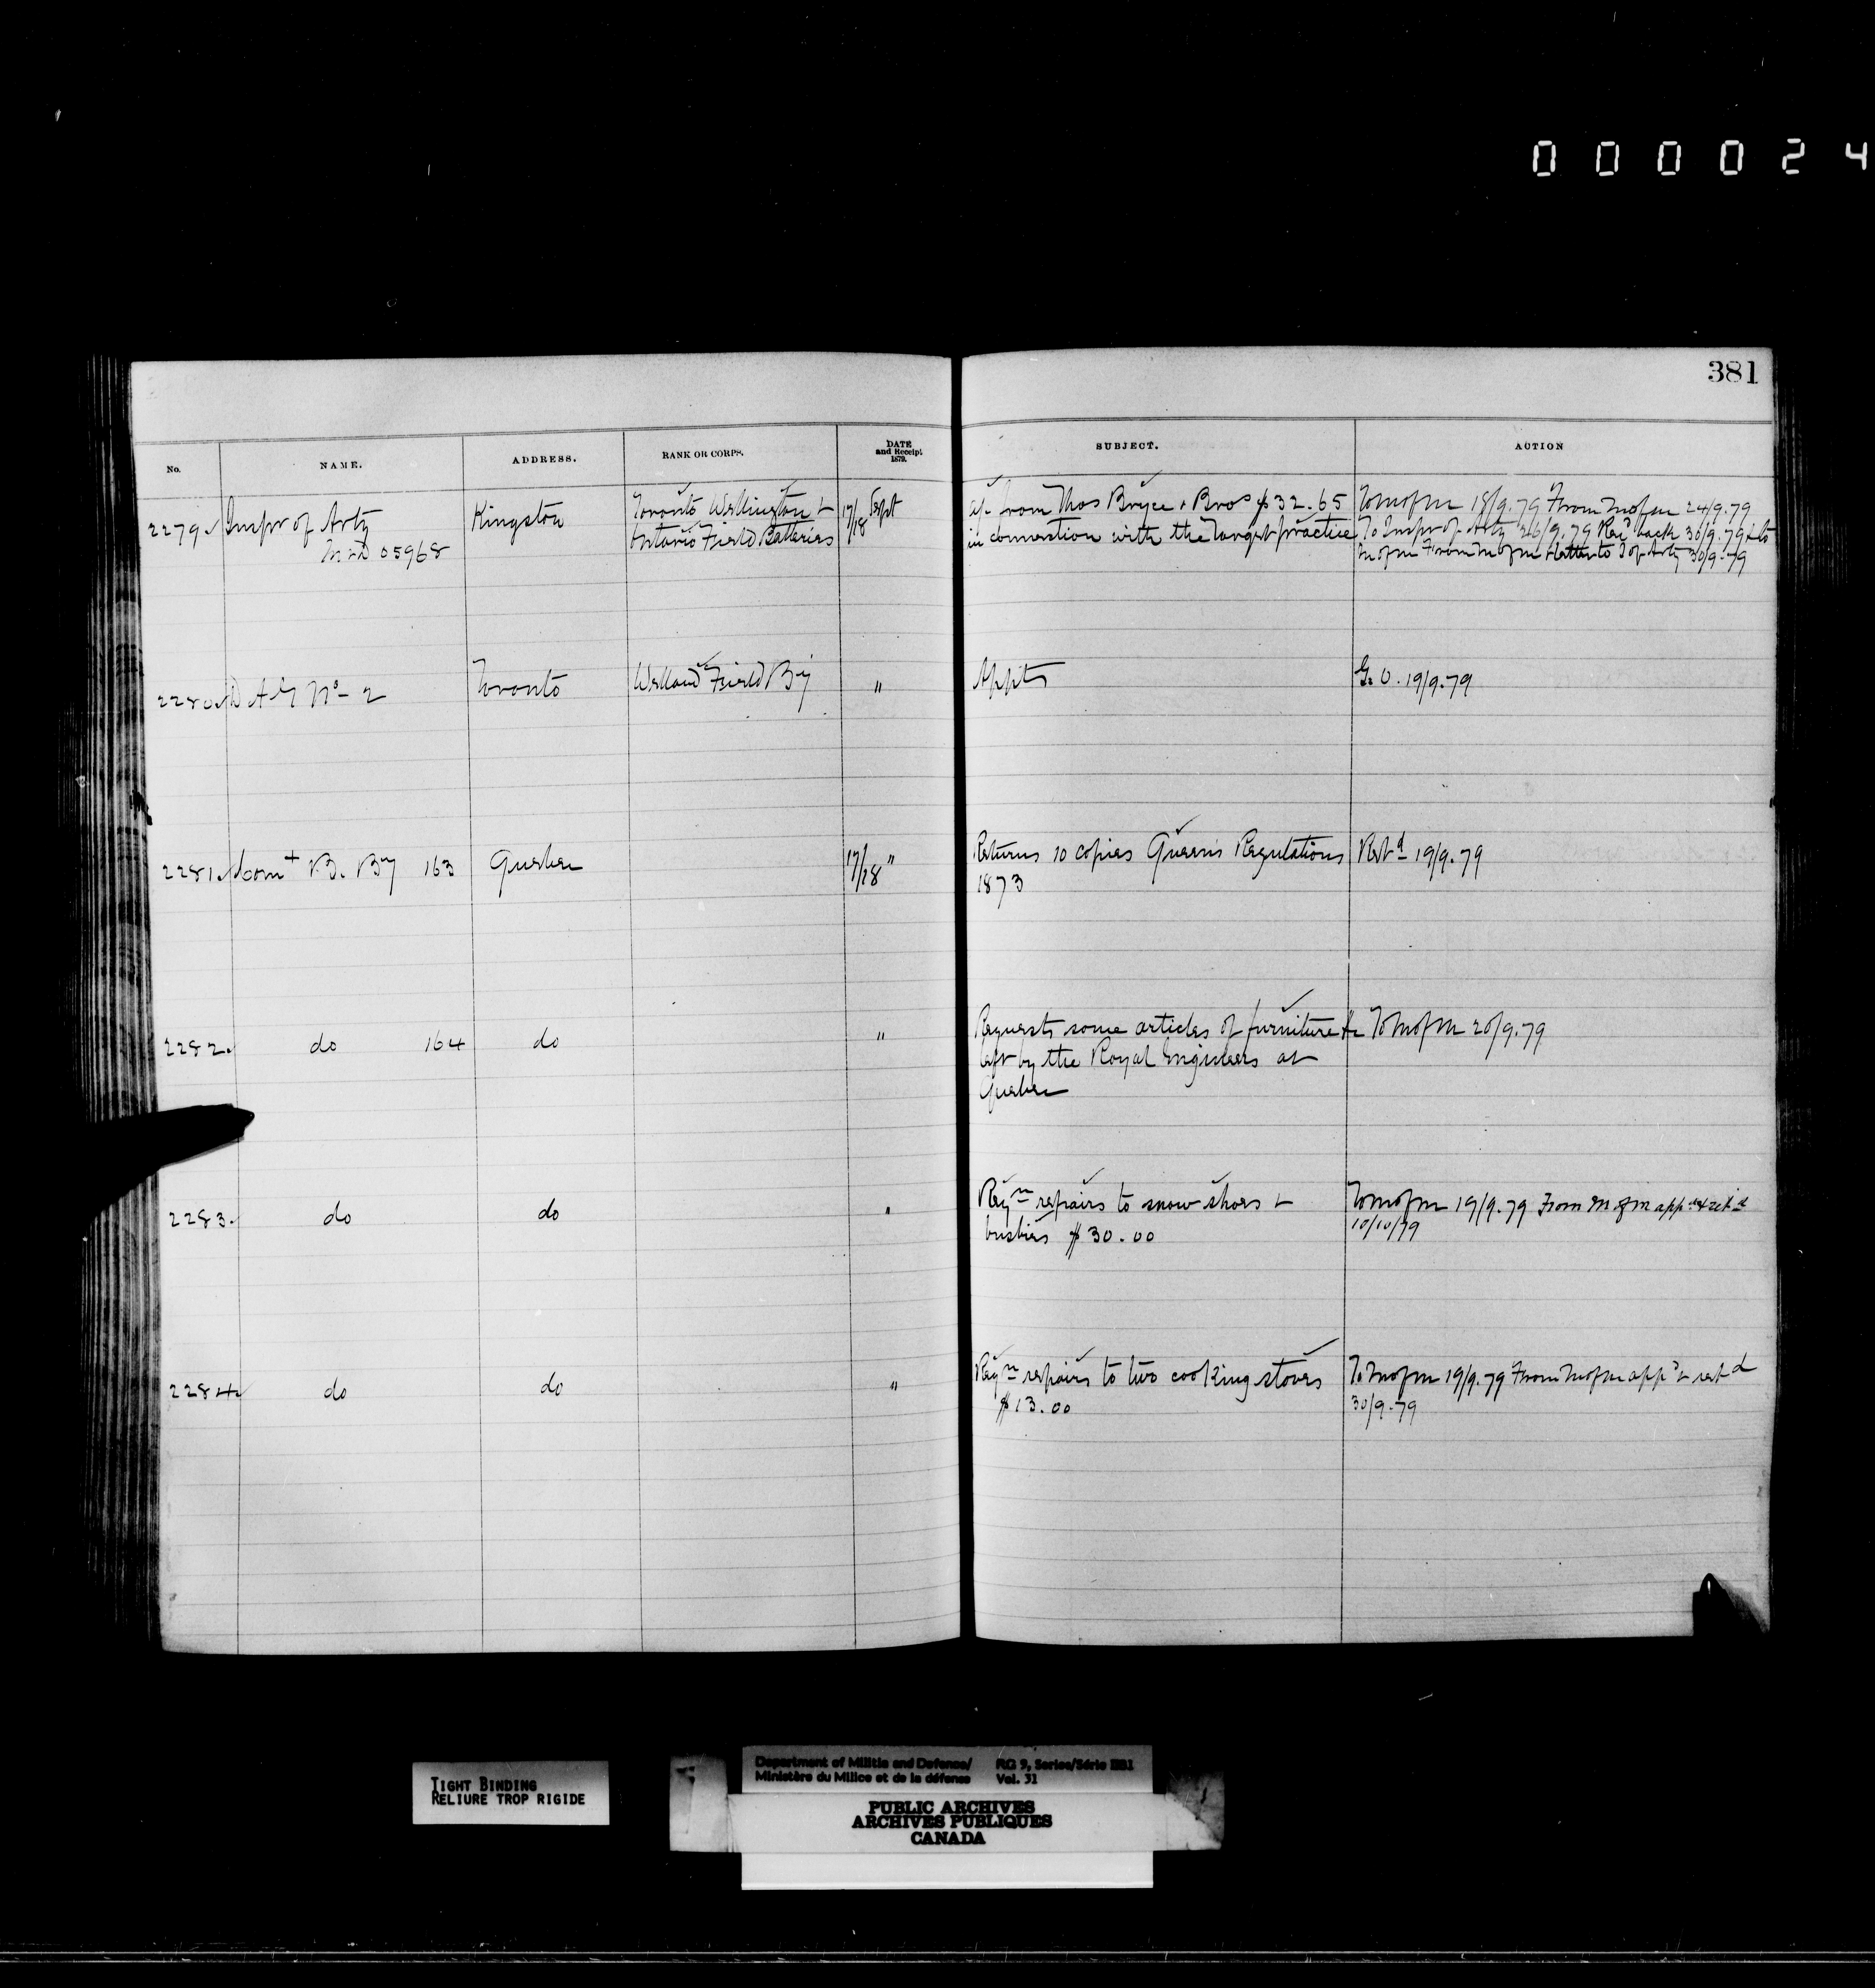 000024
381
No. NAME. ADDRESS. RANK OR CORPS. DATE and Receipt 1879. SUBJECT. ACTION
2279 Inspr of Arty Kingston Toronto Wellington & 17/18 Sept a/c from Thos Bryce & Bros $32.65 To M of M 18/9.79 From M of M 24/9.79
M & D 05968 Ontario Field Batteries in connection with the target practice To Inspr of Arty 26/9.79 Recd back 30/9.79 & to
M of M From M of M & letter to I of Arty 30/9.79
2280 D A G No 2 Toronto Welland Field By " Appts G.O. 19/9.79
2281 Comt B. By 163 Quebec 17/18 " Returns 10 copies Queen's Regulations Retd 19/9.79
1873
2282 do 164 do " Requests some articles of furniture &c To M of M 20/9.79
left by the Royal Engineers at
Quebec
2283 do do " Reqn repairs to snow shoes & To M of M 19/9.79 From M of M appd & retd
busbies $30.00 10/10/79
2284 do do " Reqn repairs to two cooking stoves To M of M 19/9.79 From M of M appd & retd
$13.00 30/9.79
TIGHT BINDING
RELIURE TROP RIGIDE
Department of Militia and Defence/ RG 9, Series/Série IIB1
Ministère du Milice et de la défense Vol. 31
PUBLIC ARCHIVES
ARCHIVES PUBLIQUES
CANADA